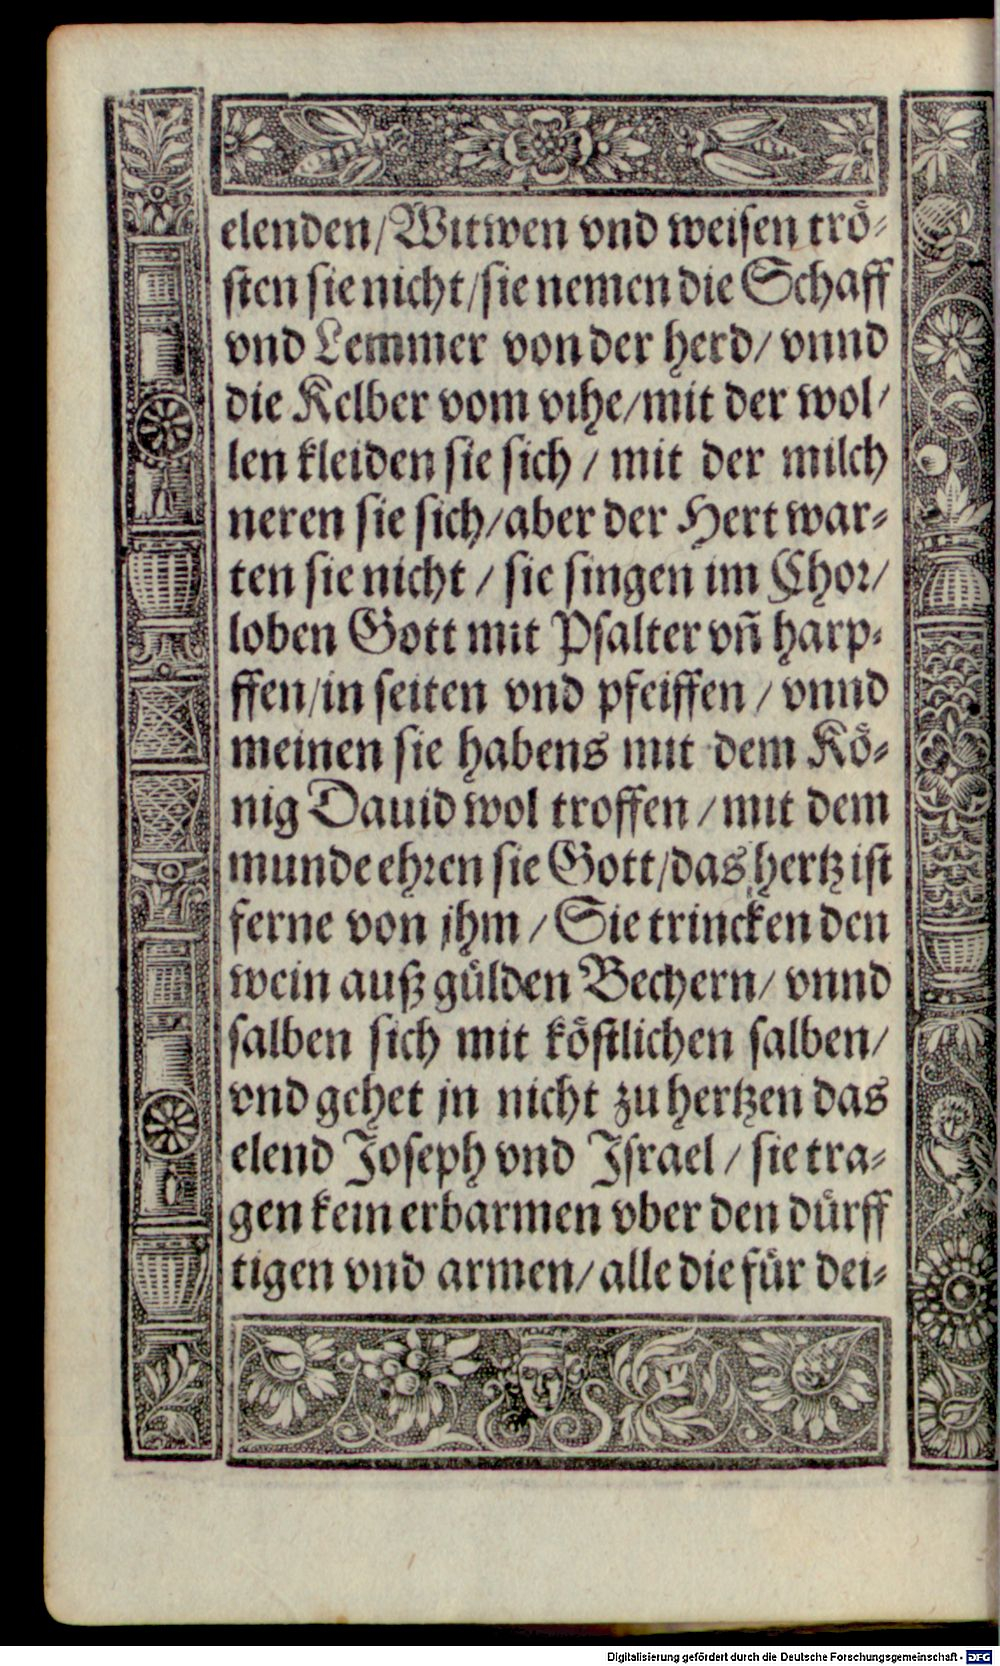 elenden/Witwen vnd weisen trö-
sten sie nicht/sie nemen die Schaff
vnd Lemmer von der herd/ vnnd
die Kelber vom vihe/mit der wol/
len kleiden sie sich / mit der milch
neren sie sich/aber der Hert war-
ten sie nicht / sie singen im Chor/
loben Gott mit Psalter vñ harp-
ffen/in seiten vnd pfeiffen / vnnd
meinen sie habens mit dem Kö-
nig Dauid wol troffen / mit dem
munde ehren sie Gott/das hertz ist
ferne von jhm / Sie trincken den
wein auß gülden Bechern/ vnnd
salben sich mit köstlichen salben/
vnd gehet jn nicht zu hertzen das
elend Joseph vnd Israel / sie tra-
gen kein erbarmen vber den dürff
tigen vnd armen/ alle die für dei-
Digitalisierung gefördert durch die Deutsche Forschungsgemeinschaft - DFG